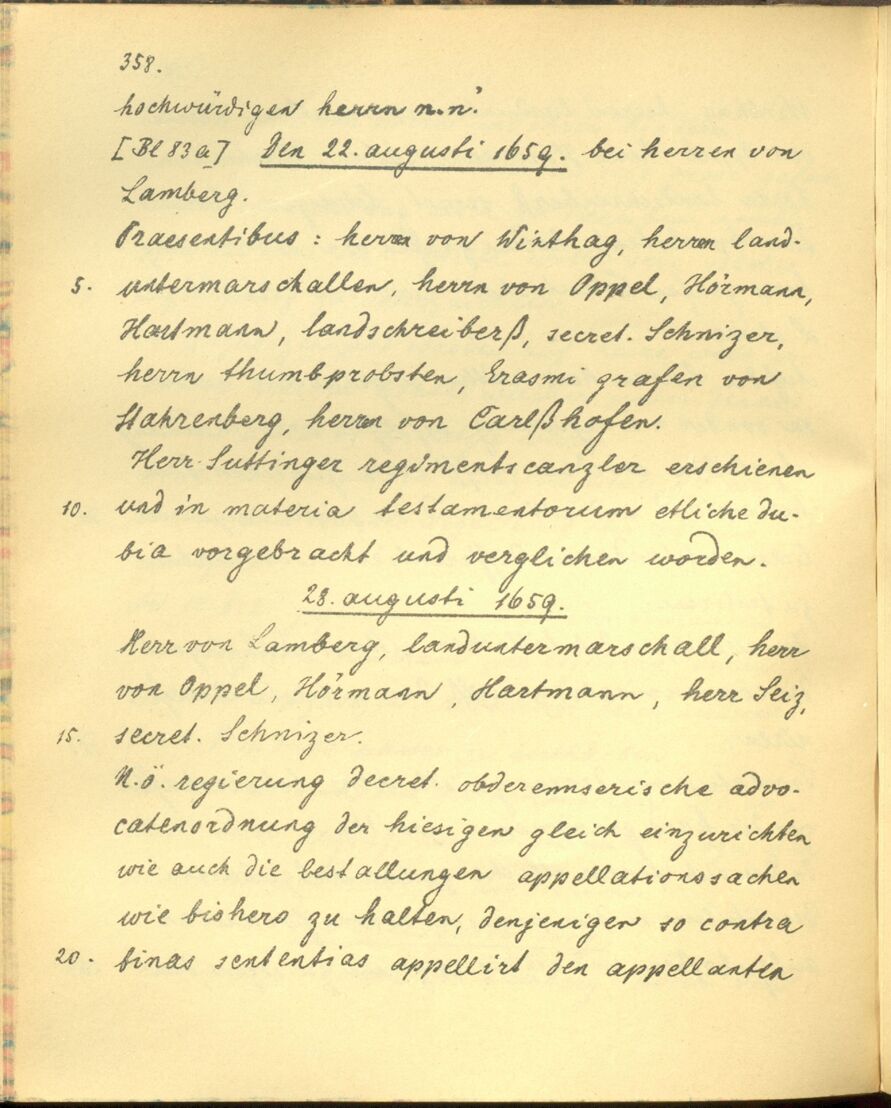 358.
hochwürdigen herrn n.n.'
[Bl 83a] Den 22. augusti 1659. bei herren von
Lamberg.
Praesentibus : herren von Winthag, herren land-
5. untermarschallen, herrn von Oppel, Hörmann,
Hartmann, landschreiberß, secret. Schnizer,
herrn thumbprobsten, Erasmi grafen von
Stahrenberg, herren von Carlßhofen.
Herr Suttinger regimentscanzler erschienen
10. und in materia testamentorum etliche du-
bia vorgebracht und verglichen worden.
28. augusti 1659.
Herr von Lamberg, landuntermarschall, herr
von Oppel, Hörmann, Hartmann, herr Seiz,
15. secret. Schnizer.
N.ö. regierung decret. obderennserische advo-
catenordnung der hiesigen gleich einzurichten
wie auch die bestallungen appellationssachen
wie bishero zu halten, denjenigen so contra
20. binas sententias appellirt den appellanten